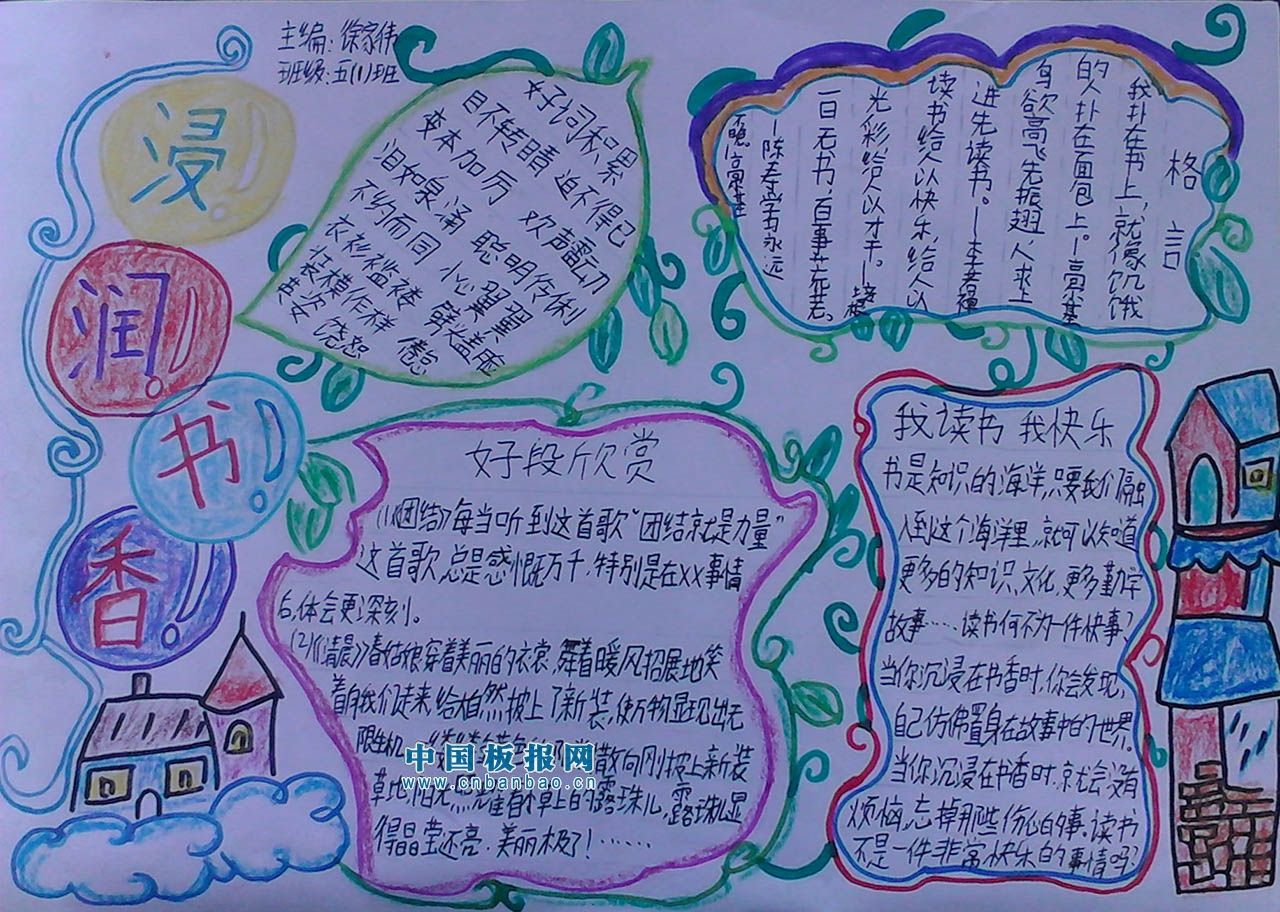 主编:徐家伟
班级:五(1)班
浸
润
书
香
好词积累
目不转睛 迫不得已
变本加厉 欢声雷动
泪如泉涌 聪明伶俐
不约而同 小心翼翼
衣衫褴褛 劈头盖脸
装模作样 倦怠
饶恕
格言
我扑在书上,就像饥饿
的人扑在面包上。—高基
鸟欲高飞先振翅,人求上
进先读书。——李若禅
读书给人以快乐,给人以
光彩,给人以才干。—
一日无书,百事荒芜。
—陈寿 学习永远
不晚。高基
好子段欣赏
(1)《团结》每当听到这首歌“团结就是力量”
这首歌,总是感慨万千,特别是在XX事情
后,体会更深刻。
(2)《清晨》春姑娘穿着美丽的衣裳,舞着暖风招展地笑
着向我们走来,给大自然披上了新装,使万物显现出无
限生机。散向刚披上新装
草地,阳光照耀着草上的露珠儿,露珠儿显
得晶莹还亮,美丽极了!……
中国板报网
www.cnbanbao.cn
我读书 我快乐
书是知识的海洋,只要我们融
入到这个海洋里,就可以知道
更多的知识、文化,更多勤学
故事……读书何不为一件快事?
当你沉浸在书香时,你会发现,
自己仿佛置身在故事中的世界。
当你沉浸在书香时,就会没有
烦恼,忘掉那些伤心的事。读书
不是一件非常快乐的事情吗?